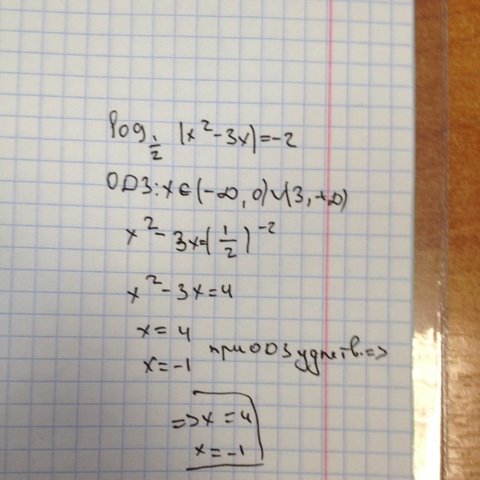 log_{1/2} |x² - 3x| = -2
ОДЗ: x ∈ (-∞, 0) ∪ (3, +∞)
x² - 3x = (1/2)^{-2}
x² - 3x = 4
x = 4
x = -1 при ОДЗ удветв. =>
=> x = 4
x = -1